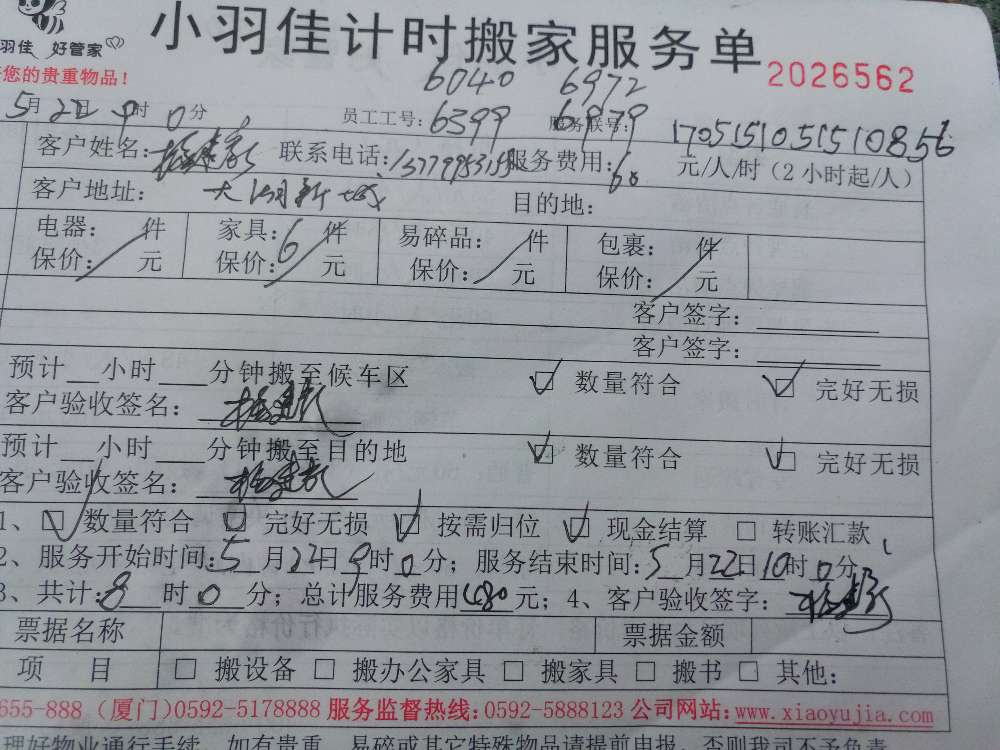 小羽佳计时搬家服务单
羽佳 好管家
您的贵重物品！
2026562
6040 6972
5月22日9时0分 员工工号：6399 6979 服务联号：17051510515108556
客户姓名： 联系电话： 服务费用：60 元/人/时（2小时起/人）
客户地址： 目的地：
电器： 件 家具：6件 易碎品： 件 包裹： 件
保价： 元 保价： 元 保价： 元 保价： 元
客户签字：
客户签字：
预计 小时 分钟搬至候车区 ☑ 数量符合 ☑ 完好无损
客户验收签名：
预计 小时 分钟搬至目的地 ☑ 数量符合 ☑ 完好无损
客户验收签名：
1、☑ 数量符合 ☑ 完好无损 ☑ 按需归位 ☑ 现金结算 □ 转账汇款
2、服务开始时间：5月22日9时0分；服务结束时间：5月22日10时0分
3、共计：8时0分；总计服务费用480元；4、客户验收签字：
票据名称 票据金额
项 目 □ 搬设备 □ 搬办公家具 □ 搬家具 □ 搬书 □ 其他：
655-888（厦门）0592-5178888 服务监督热线：0592-5888123 公司网站：www.xiaoyujia.com
理好物业通行手续，如有贵重、易碎或其它特殊物品请提前申报，否则我司不予负责